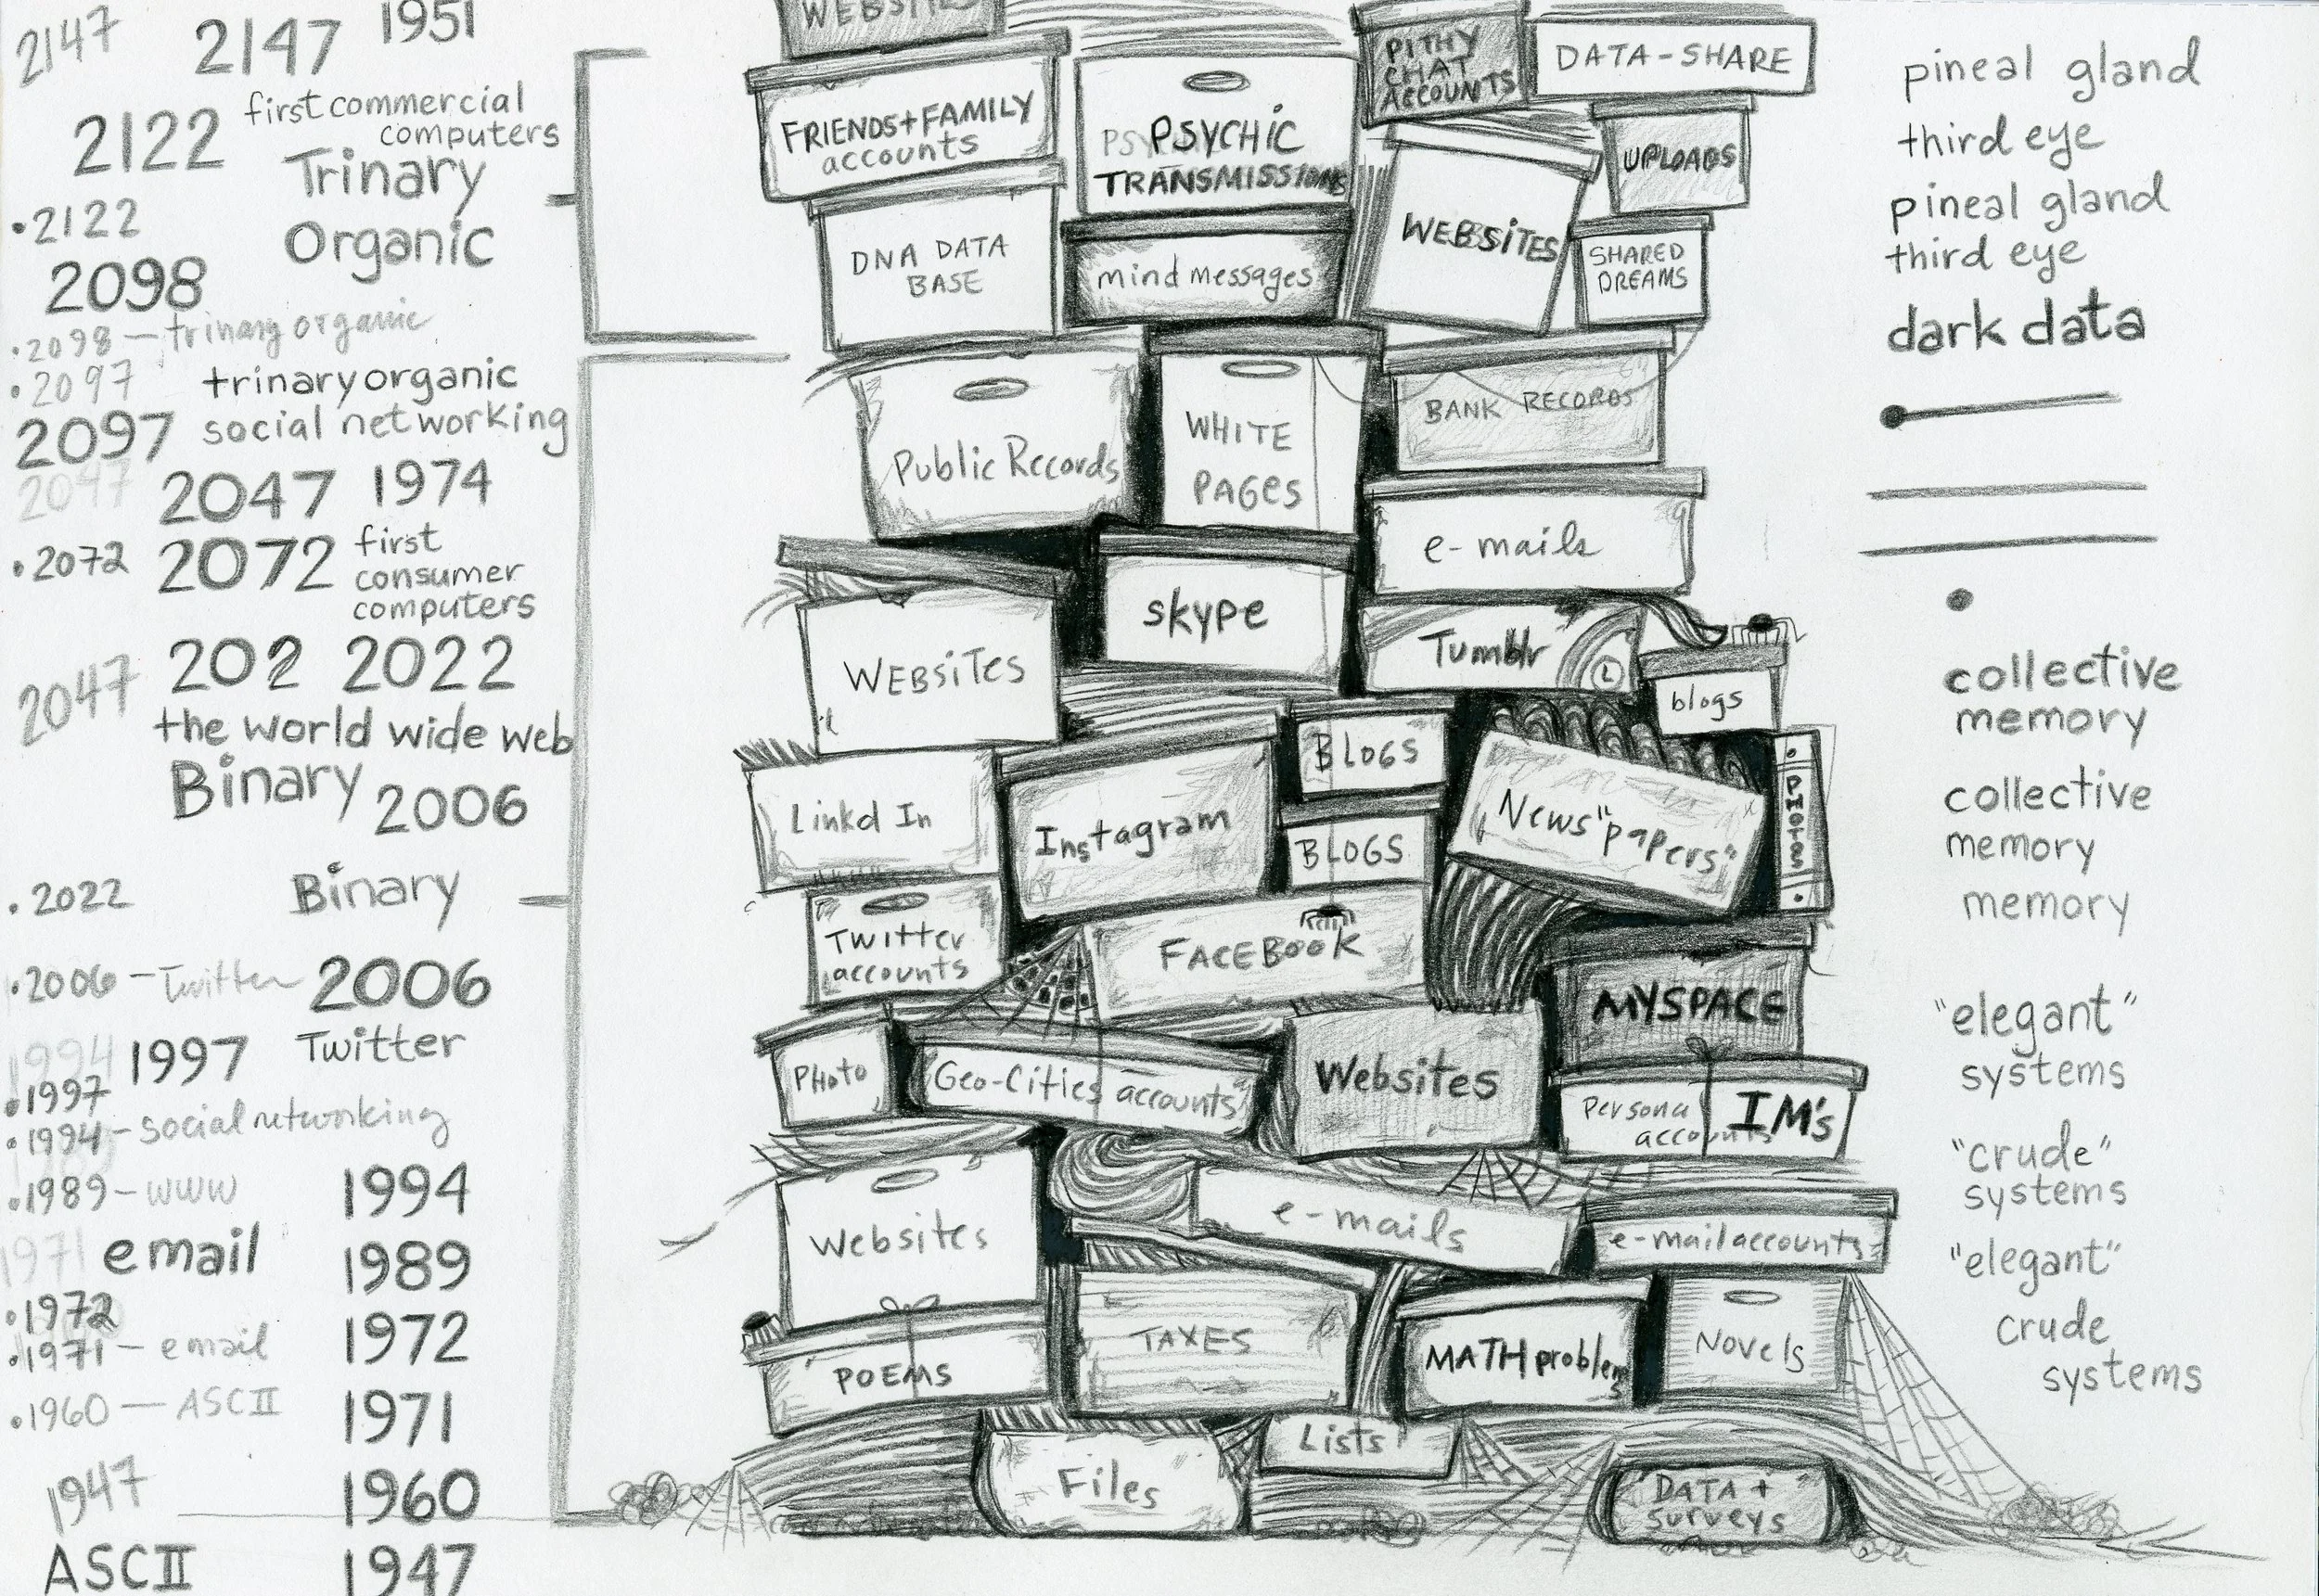 2147
2147
1951
2122
first commercial
computers
Trinary
Organic
•2122
2098
•2098 — trinary organic
•2097
trinary organic
2097
social networking
2047
2047
1974
•2072
2072
first
consumer
computers
202
2022
2047
the world wide web
Binary
2006
•2022
Binary
•2006 — Twitter
2006
1994
1997
Twitter
•1997
•1994 - social networking
•1989 - WWW
1994
1971
email
1989
•1972
•1971 - email
1972
•1960 — ASCII
1971
1947
1960
ASCII
1947
WEBSITES
FRIENDS + FAMILY
accounts
PSYCHIC
TRANSMISSIONS
PITHY
CHAT
ACCOUNTS
DATA-SHARE
UPLOADS
DNA DATA
BASE
mind messages
WEBSITES
SHARED
DREAMS
Public Records
WHITE
PAGES
BANK RECORDS
e-mails
WEBSITES
skype
Tumblr
blogs
Linkd In
Instagram
BLOGS
BLOGS
News "papers"
PHOTOS
Twitter
accounts
FACEBOOK
MYSPACE
PHOTO
Geo-Cities accounts
Websites
Personal
accounts
IM's
Websites
e-mails
e-mail accounts
POEMS
TAXES
MATH problems
Novels
Files
Lists
DATA +
surveys
pineal gland
third eye
pineal gland
third eye
dark data
collective
memory
collective
memory
memory
"elegant"
systems
"crude"
systems
"elegant"
crude
systems